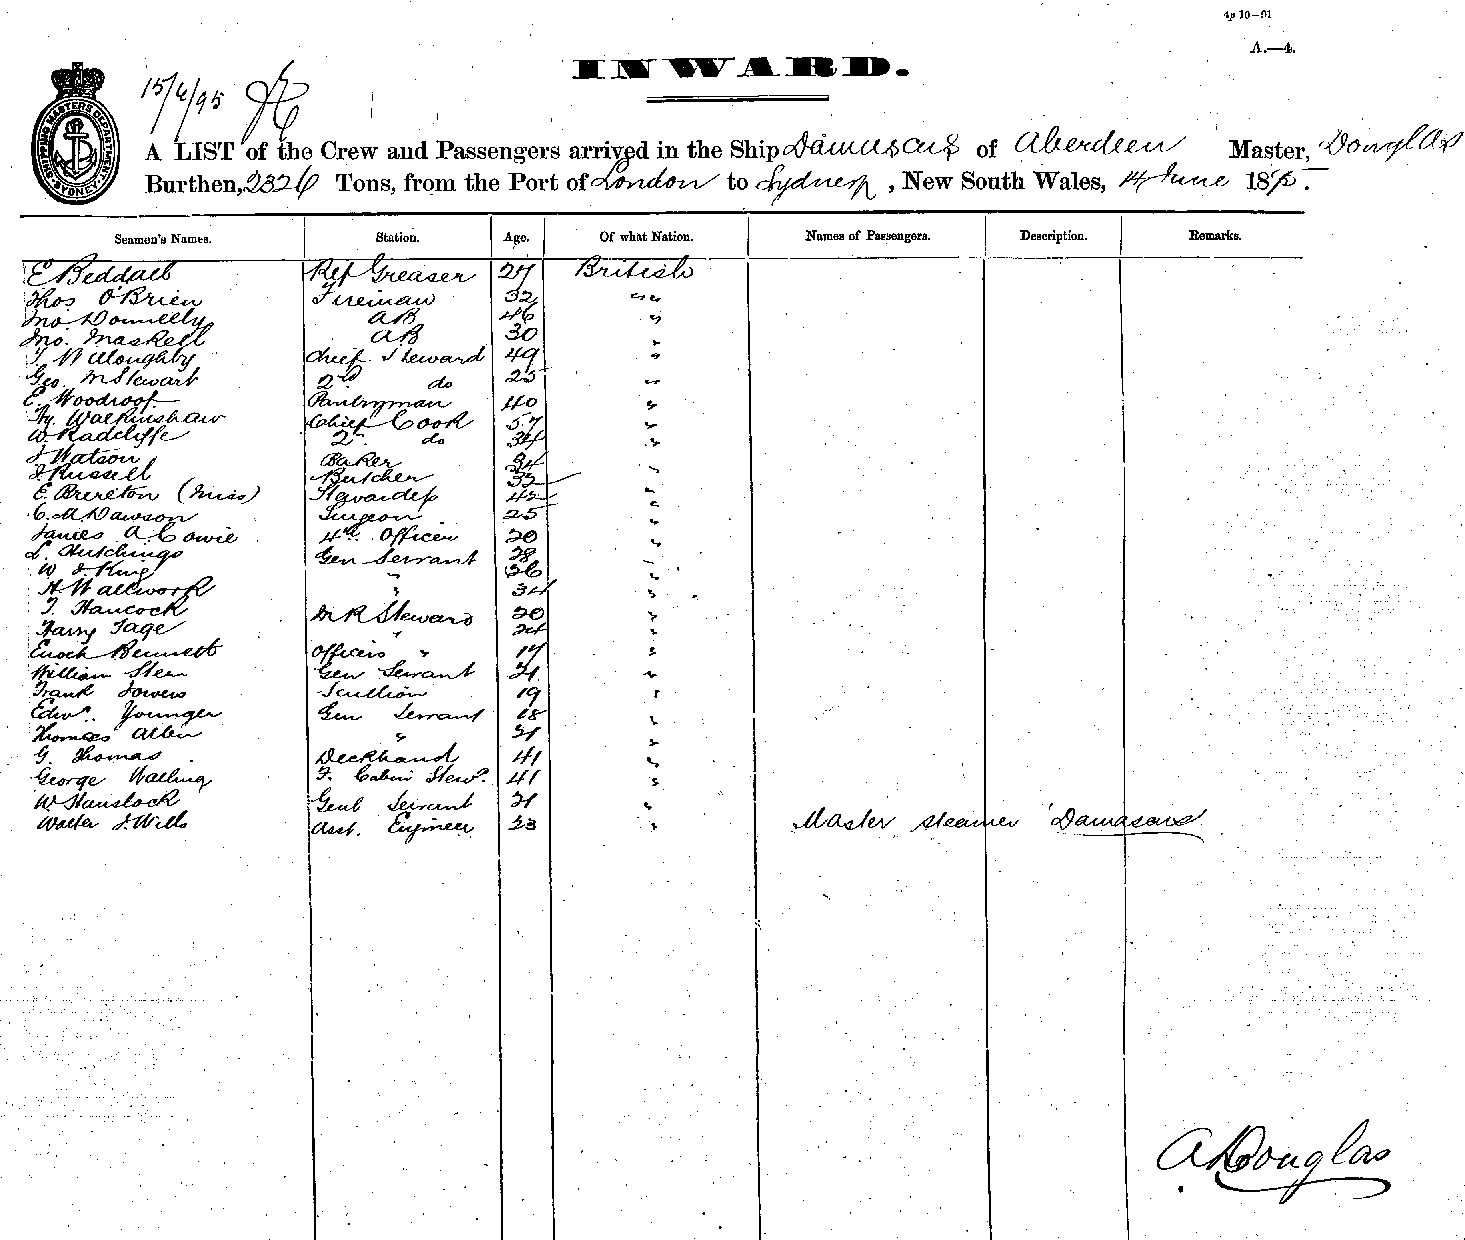 4p 10–91
A.—4.
INWARD.
15/6/95
SHIPPING MASTERS DEPARTMENT SYDNEY
A LIST of the Crew and Passengers arrived in the Ship Damascus of Aberdeen Master, Douglas
Burthen, 2326 Tons, from the Port of London to Sydney, New South Wales, 14 June 1895.
Seamen's Names. Station. Age. Of what Nation. Names of Passengers. Description. Remarks.
E Beddall Ref Greaser 27 British
Thos O'Brien Fireman 32 " "
Jno Donnelly AB 46 "
Jno. Maskell AB 30 "
T Willoughby Chief Steward 49 "
Geo. McStewart 2nd do 25 "
E. Woodroof Pantryman 40 "
Hy. Walkinshaw Chief Cook 57 "
W. Radcliffe 2nd do 34 "
J Watson Baker 34 "
J. Russell Butcher 32 "
E. Brereton (Miss) Stewardess 42 "
C. A Dawson Surgeon 25 "
James A. Cowie 4th Officer 20 "
L. Hutchings Gen Servant 28 "
W J. King " 26 "
A Wallwork " 34 "
T. Hancock M R Steward 20 "
Harry Tage " 24 "
Enoch Bennett Officers " 17 "
William Steer Gen Servant 21 "
Frank Sowers Scullion 19 "
Edwd. Younger Gen Servant 18 "
Thomas Allen " 21 "
G. Thomas Deckhand 41 "
George Walling F. Cabin Stewd. 41 "
W. Hanslock Genl Servant 21 "
Walter J. Wills Asst. Engineer 23 " Master steamer "Damascus"
A Douglas